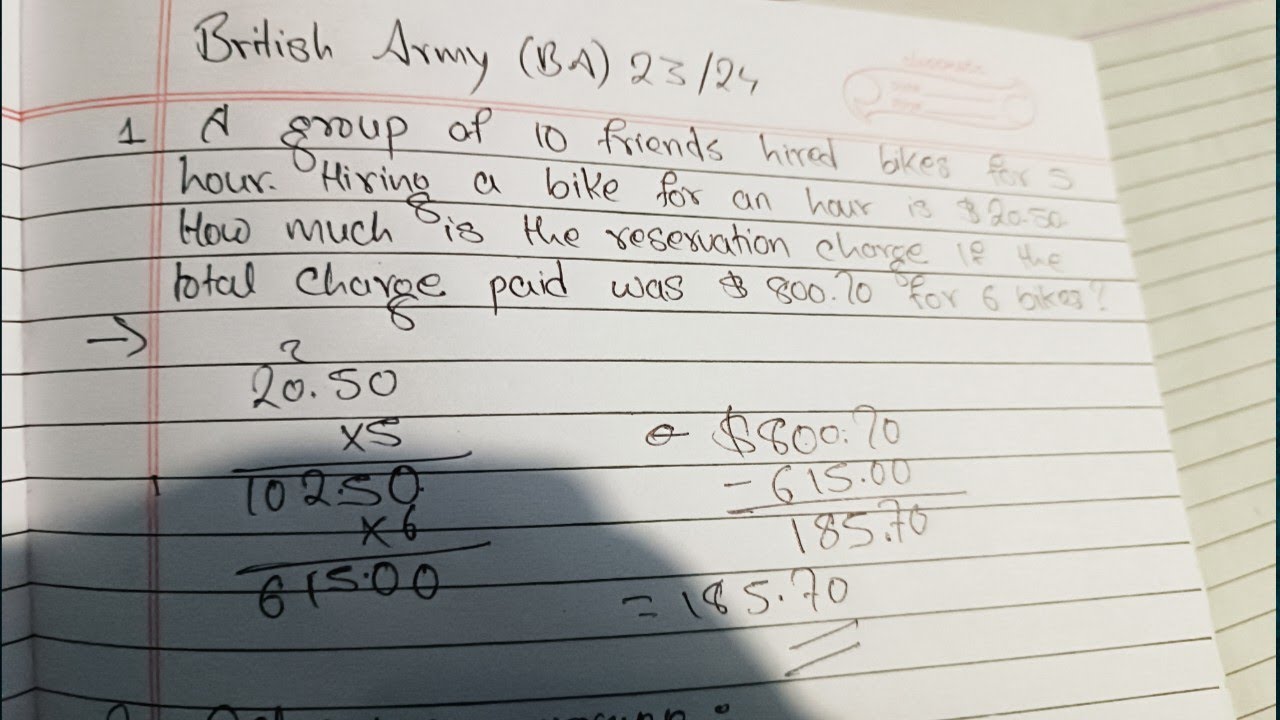 British Army (BA) 23/24
1 A group of 10 friends hired bikes for 5
hour. Hiring a bike for an hour is $20.50.
How much is the reservation charge if the
total charge paid was $ 800.70 for 6 bikes?
→
2
20.50
×5
102.50
×6
615.00
$800.70
- 615.00
185.70
= 185.70